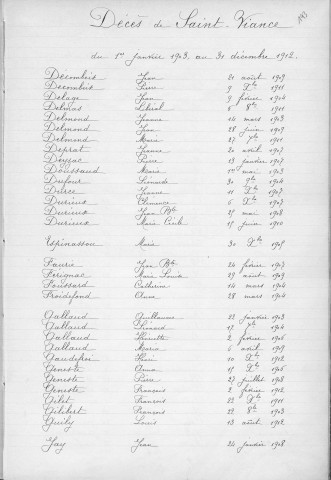 Décès de Saint-Viance
du 1er Janvier 1903 au 31 décembre 1912.
Decembris Jean 21 août 1909
Decembris Pierre 9 Xbre 1911
Delage Jean 9 février 1904
Delmas 8 8bre 1911
Delmond Jeanne 14 mars 1903
Delmond Jean 28 juin 1909
Delmond Marie 27 1911
Deprat Jeanne 20 août 1907
Deyzac Pierre 13 janvier 1907
Doussaud Marie 1er mai 1903
Dufour Léonarde 30 9bre 1906
Jeanne 11 Xbre 1907
Durieux Clémence 6 Xbre 1907
Durieux Jean Bte 25 mai 1908
Durieux Marie 15 juin 1910
Espinasson Marie 30 Xbre 1905
Faurie Jean Bte 24 février 1907
Feugnac Marie 29 août 1909
Foussard Catherine 14 mars 1904
Froidefond Anna 28 mars 1904
Gallaud Guillaume 22 janvier 1903
Gallaud Léonard 17 1904
Gallaud Pierrette 2 février 1906
Gallaud Maria 6 août 1908
Gaudefroi Pierre 10 Xbre 1912
Geneste Anna 15 Xbre 1906
Geneste Pierre 27 juillet 1908
Geneste François 2 février 1912
Gilet François 22 Xbre 1911
Gilibert François 22 8bre 1903
Guily Louis 13 août 1912
Jay Jean 24 janvier 1908